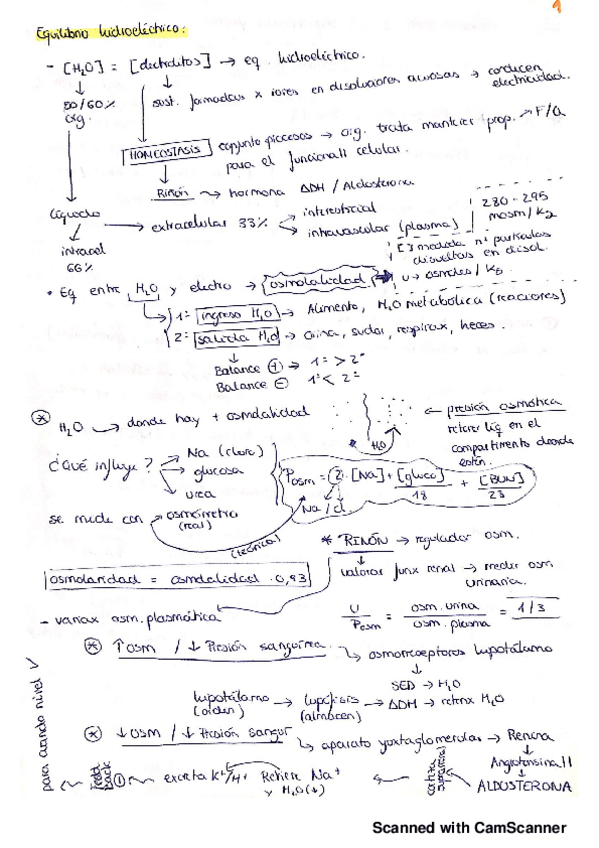 1
Equilibrio hidroeléctrico:
- [H₂O] = [electrolitos] → eq. hidroeléctrico.
50/60% org.
sust. formadas x iones en disoluciones acuosas → conducen electricidad.
HOMEOSTASIS conjunto procesos → org. trata mantener prop. → F/Q
para el funcional// celular.
Riñón → hormona ADH / Aldosterona
líquido → extracelular 33%
intersticial
intravascular (plasma)
intracel
66%
280-295
mosm/kg
[ ] medida nº partículas
disueltas en disol.
u → osmoles/kg
• Eq entre H₂O y electro → osmolalidad
1= ingreso H₂O → Alimento, H₂O metabólica (reacciones)
2= salida H₂O → orina, sudor, respirax, heces.
Balance + → 1= > 2=
Balance - 1= < 2=
* H₂O → donde hay + osmolalidad
H₂O
← presión osmótica
retener líq en el
compartimento donde
están.
¿Qué influye?
Na (cloro)
glucosa
urea
Posm = 2·[Na] + [gluco]/18 + [BUN]/23
Na/cl
se mide con → osmómetro
(real)
(teórica)
* RIÑÓN → regulador osm.
valorar funx renal → medir osm
urinaria.
osmolaridad = osmolalidad · 0,93
U/Posm = osm. urina/osm. plasma = 1/3
- variax osm. plasmática
* ↑osm / ↓ Presión sanguínea → osmorreceptores hipotálamo
SED → H₂O
hipotálamo → hipófisis → ADH → retenx H₂O
(orden) (almacén)
* ↓osm / ↓ Presión sangor → aparato yuxtaglomerular → Renina
Angiotensina II
ALDOSTERONA
corteza suprarrenal
Retiene Na⁺
y H₂O (↓)
excreta K⁺/H⁺
feed back
para cuando nivel ✓
Scanned with CamScanner